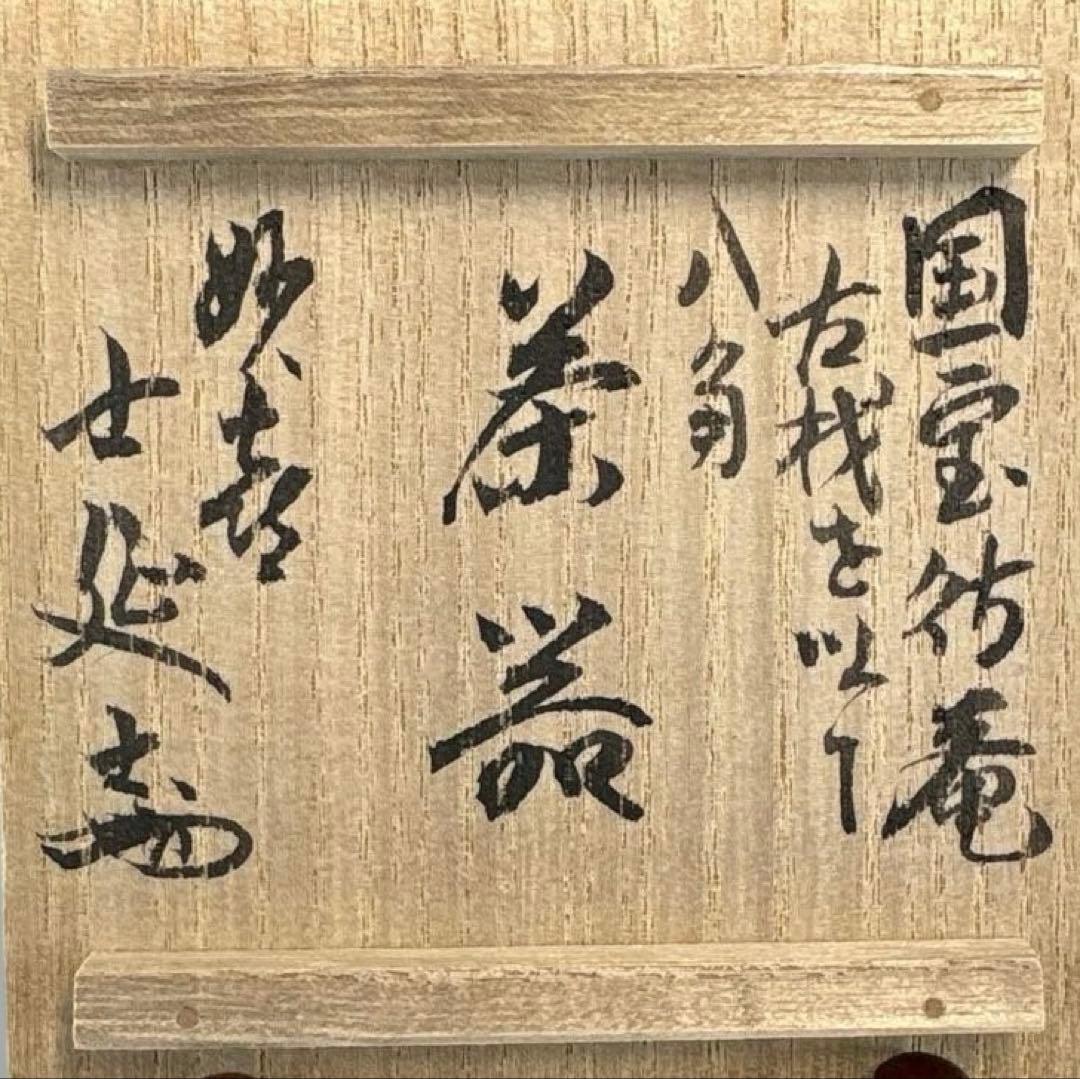 国宝待庵
古材を以て
八角
茶器
妙喜
士延